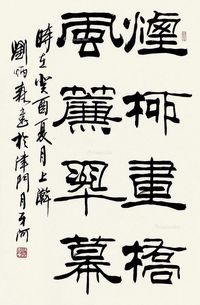 煙柳畫橋
風簾翠幕
時在癸酉夏月上澣
劉炳森書於津門月牙河